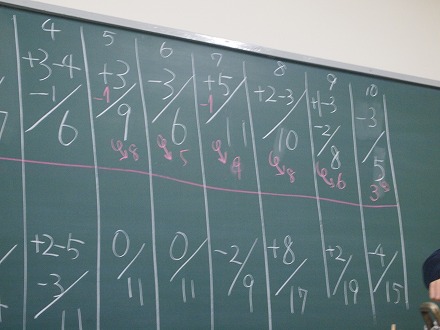 4 5 6 7 8 9 10
+3-4 +3 -3 +5 +2-3 +1-3 -3
-1 -1 -1 -2
7 6 9 6 11 10 8 5
8 5 9 8 6 3
+2-5 0 0 -2 +8 +2 -4
-3 11 11 9 17 19 15
11